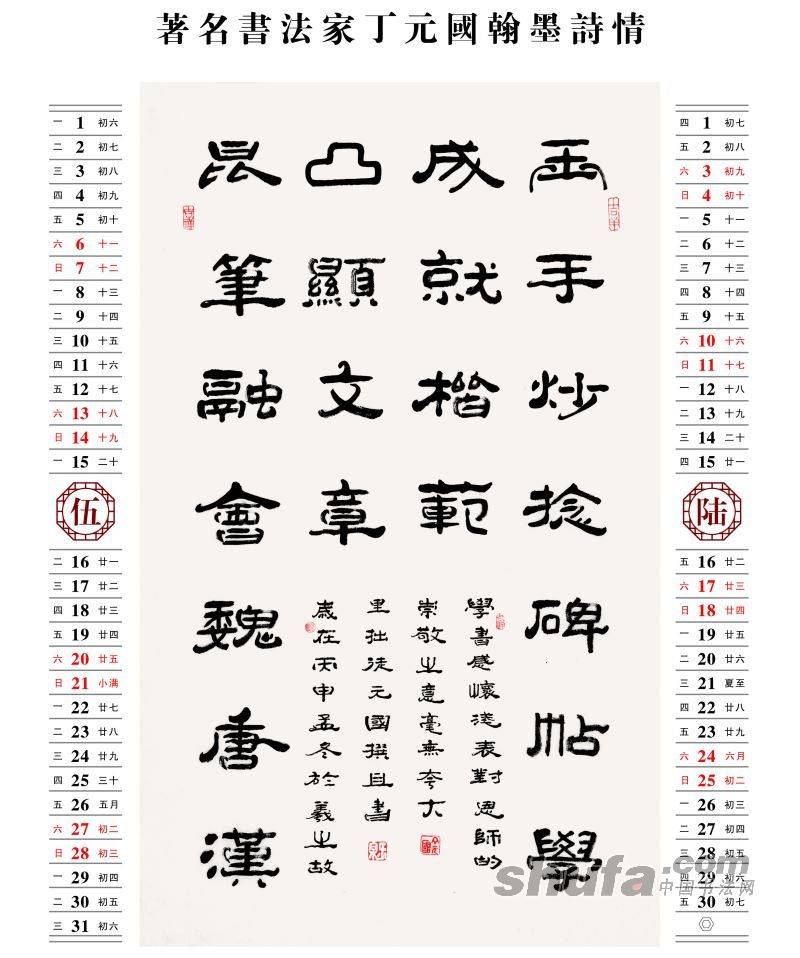 著名書法家丁元國翰墨詩情
一 1 初六
二 2 初七
三 3 初八
四 4 初九
五 5 初十
六 6 十一
日 7 十二
一 8 十三
二 9 十四
三 10 十五
四 11 十六
五 12 十七
六 13 十八
日 14 十九
一 15 二十
伍
二 16 廿一
三 17 廿二
四 18 廿三
五 19 廿四
六 20 廿五
日 21 小满
一 22 廿七
二 23 廿八
三 24 廿九
四 25 三十
五 26 五月
六 27 初二
日 28 初三
一 29 初四
二 30 初五
三 31 初六
玉手炒捻碑帖學
成就楷範
凸顯文章
昆筆融會魏唐漢
學書感懷淺表對恩師的
崇敬之意毫無夸大
歲在丙申孟冬於羲之故
里拙徒元國撰且書
四 1 初七
五 2 初八
六 3 初九
日 4 初十
一 5 十一
二 6 十二
三 7 十三
四 8 十四
五 9 十五
六 10 十六
日 11 十七
一 12 十八
二 13 十九
三 14 二十
四 15 廿一
陆
五 16 廿二
六 17 廿三
日 18 廿四
一 19 廿五
二 20 廿六
三 21 夏至
四 22 廿八
五 23 廿九
六 24 六月
日 25 初二
一 26 初三
二 27 初四
三 28 初五
四 29 初六
五 30 初七
shufa.com
中国书法网